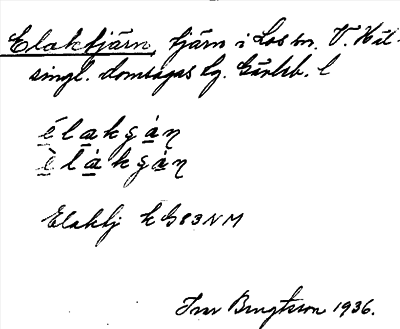 Elaktjärn, tjärn i Los sn. V. Häl-
singl. domsagas tg. Gävleb. l
élakɕàṇ
èlàkɕàṇ
Elaktj k G83NM
Ivar Bengtsson 1936.